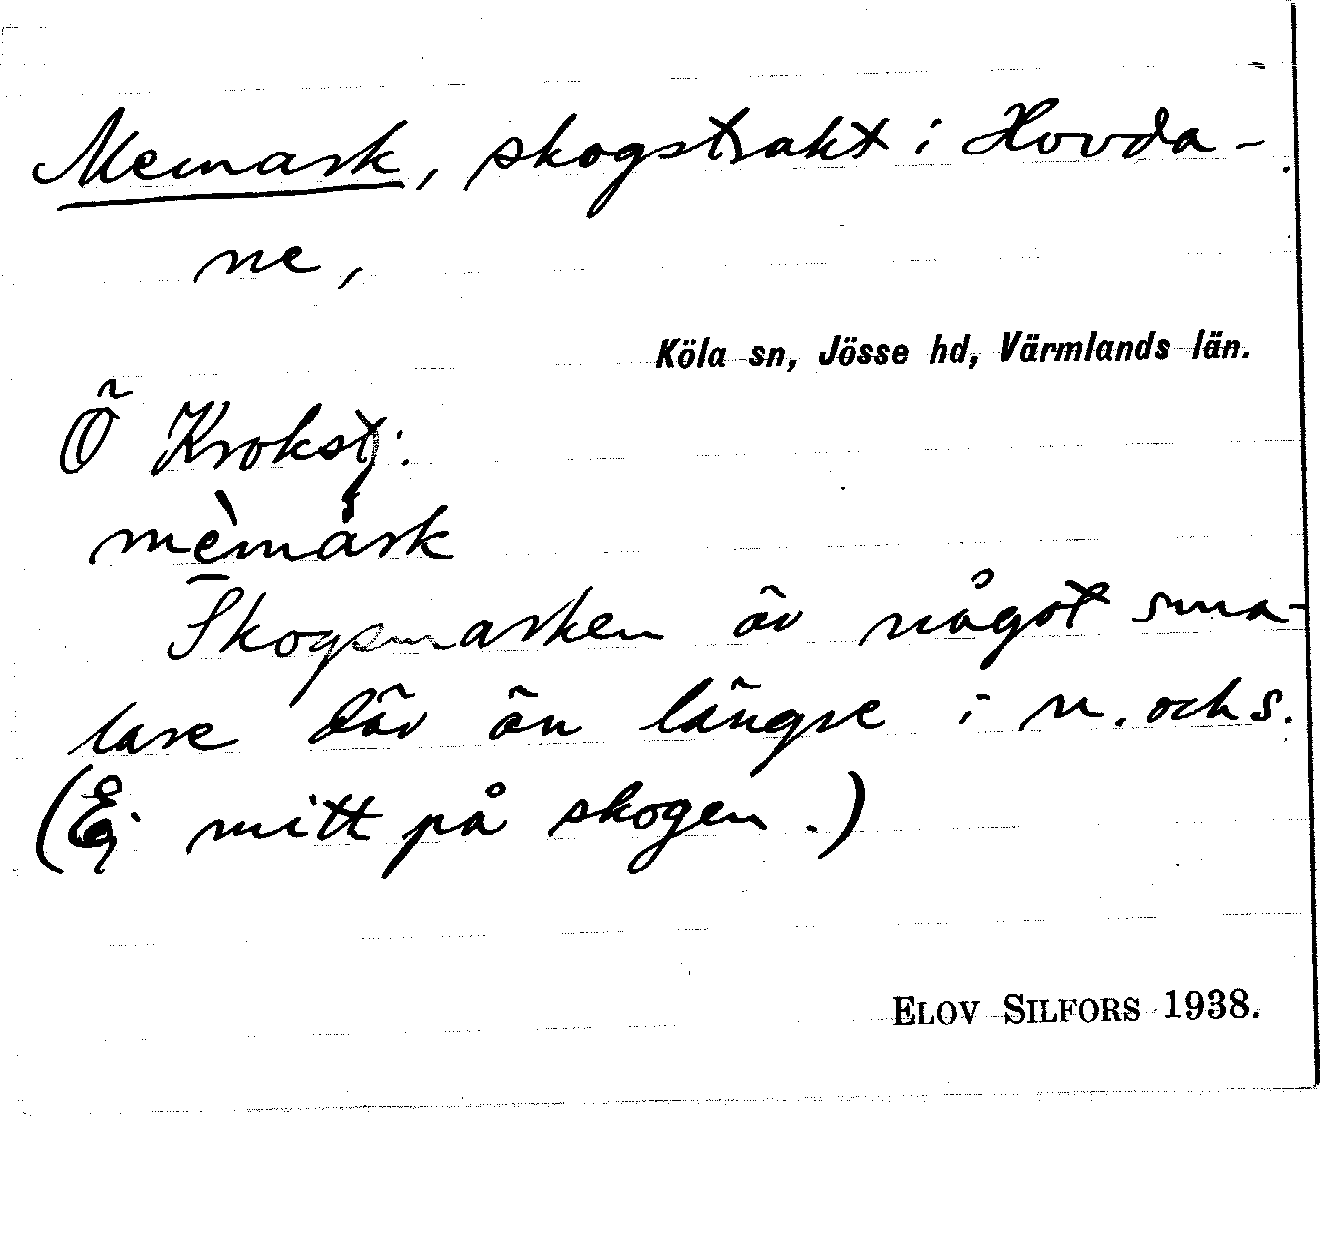 Memark, skogstrakt i Hovda-
ne,
Köla sn, Jösse hd, Värmlands län.
Ö Krokstj:
mèmàrk
Skogsmarken är något sma-
lare där än längre i n. och s.
(Ej mitt på skogen.)
ELOV SILFORS 1938.